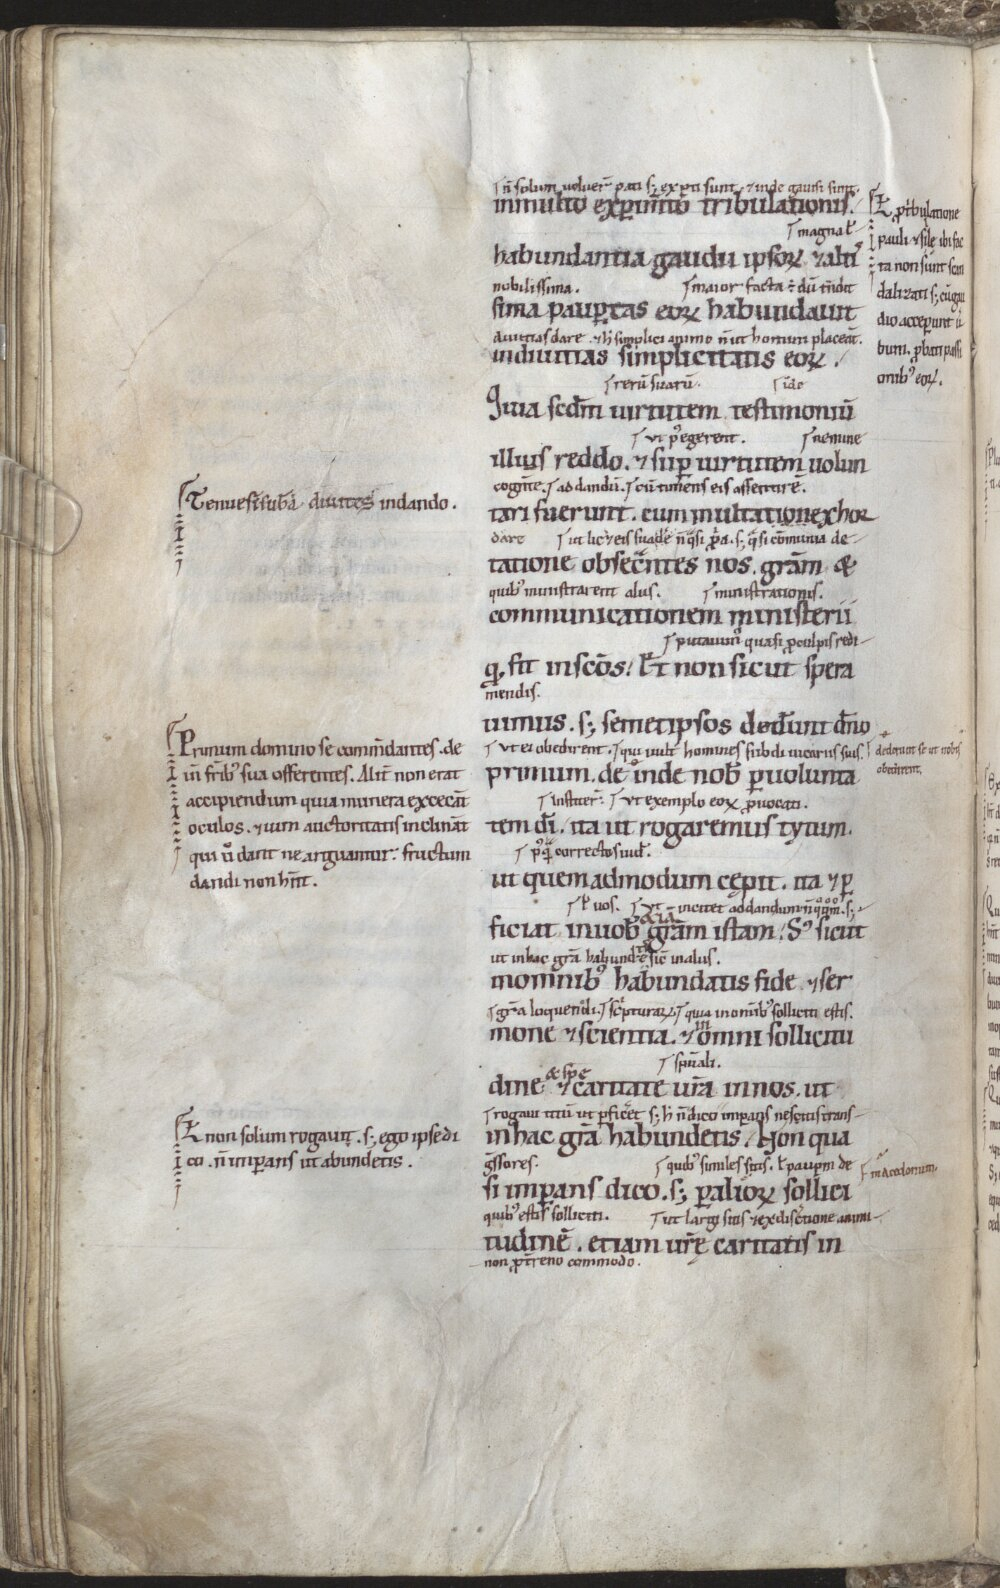 n̄ solum voluer̄ pati s; exp̲ti sunt. ⁊ inde gauisi sunt.
inmulto exp̲im̄to tribulationis.
magna ł
habundantia gaudii ipsoꝝ ⁊ altiꝰ
nobilissima. maior facta ē dū
sima paup̲tas eoꝝ habundauit
diuitias dare. ⁊ h̄ simplici animo n̄ ut hominū placeāt.
indiuitias simplicitatis eoꝝ.
rerū suarū. ido
Quia scd̄m uirtutem testimoniū
ut pꝰ egerent. nemine
illius reddo. ⁊ sup̲ uirtutem uolun
cogn̄te. ad dandū. cū
tari fuerunt. cum multa exhor
dare
tatione obsecr̄ntes nos. gr̄am &
quibꝰ ministrarent aliis. ministrationis.
communicationem ministerii
putauimꝰ quasi p̲ culpis redi-
q. fit insc̄os. Et non sicut spera
mendis.
uimus. s; semetipsos dederunt dn̄o
ut ei obedirent. qui uult homines subdi uicariis suis.
primum. deinde nob̄ p̲ uolunta
ut exemplo eoꝝ p̲uocati.
tem dī. ita ut rogaremus tytum.
correctos uid̄.
ut quemadmodum cepit. ita ⁊ p̲
ł uos. ut incitet ad dandum
ficiat inuob̄ gr̄am istam. Sꝫ sicut
ut in hac gr̄a sic̄ in aliis.
inomnibꝰ habundatis fide ⁊ ser
gr̄a loquendi. sc̄pturaꝝ. quia in omībꝰ solliciti estis.
mone ⁊ scientia. ⁊ in omni sollicitu
sp̄uali.
dine & spe ⁊ caritate ur̄a in nos. ut
rogaui titū ut p̲ficeret s; h̄ n̄ dico imp̲ans nescitis trans-
in hac gr̄a habundetis. Non qua
gr̄ssores. quibꝰ similes sitis. ł paup̲m de
si imp̲ans dico. s; p̲ alioꝝ sollici
quibꝰ estis solliciti. ut largi sitis ⁊ ex discr̄tione animi
tudinē. etiam ur̄e caritatis in
non p̲ t̄reno commodo.
Et p̲ t̄bulatione
pauli ⁊ sile ibi fac
ta non sunt scan
dalizati s; cū gau
dio acceperunt ū
bum. p̲bati passi
onibꝰ eoꝝ.
dederunt se ut nobis
obedirent.
macedonum.
Tenues īsub̄a diuites indando.
Primum domino se com̄dantes. de
in fr̄ibꝰ sua offerentes. Alit̄ non erat
accipiendum quia munera excecāt
oculos. ⁊ uim auctoritatis inclināt
qui ū dant ne arguantur. fructum
dandi non hn̄t.
Et non solum rogauit. s; ego ipse di
co. n̄ imp̲ans ut abundetis.